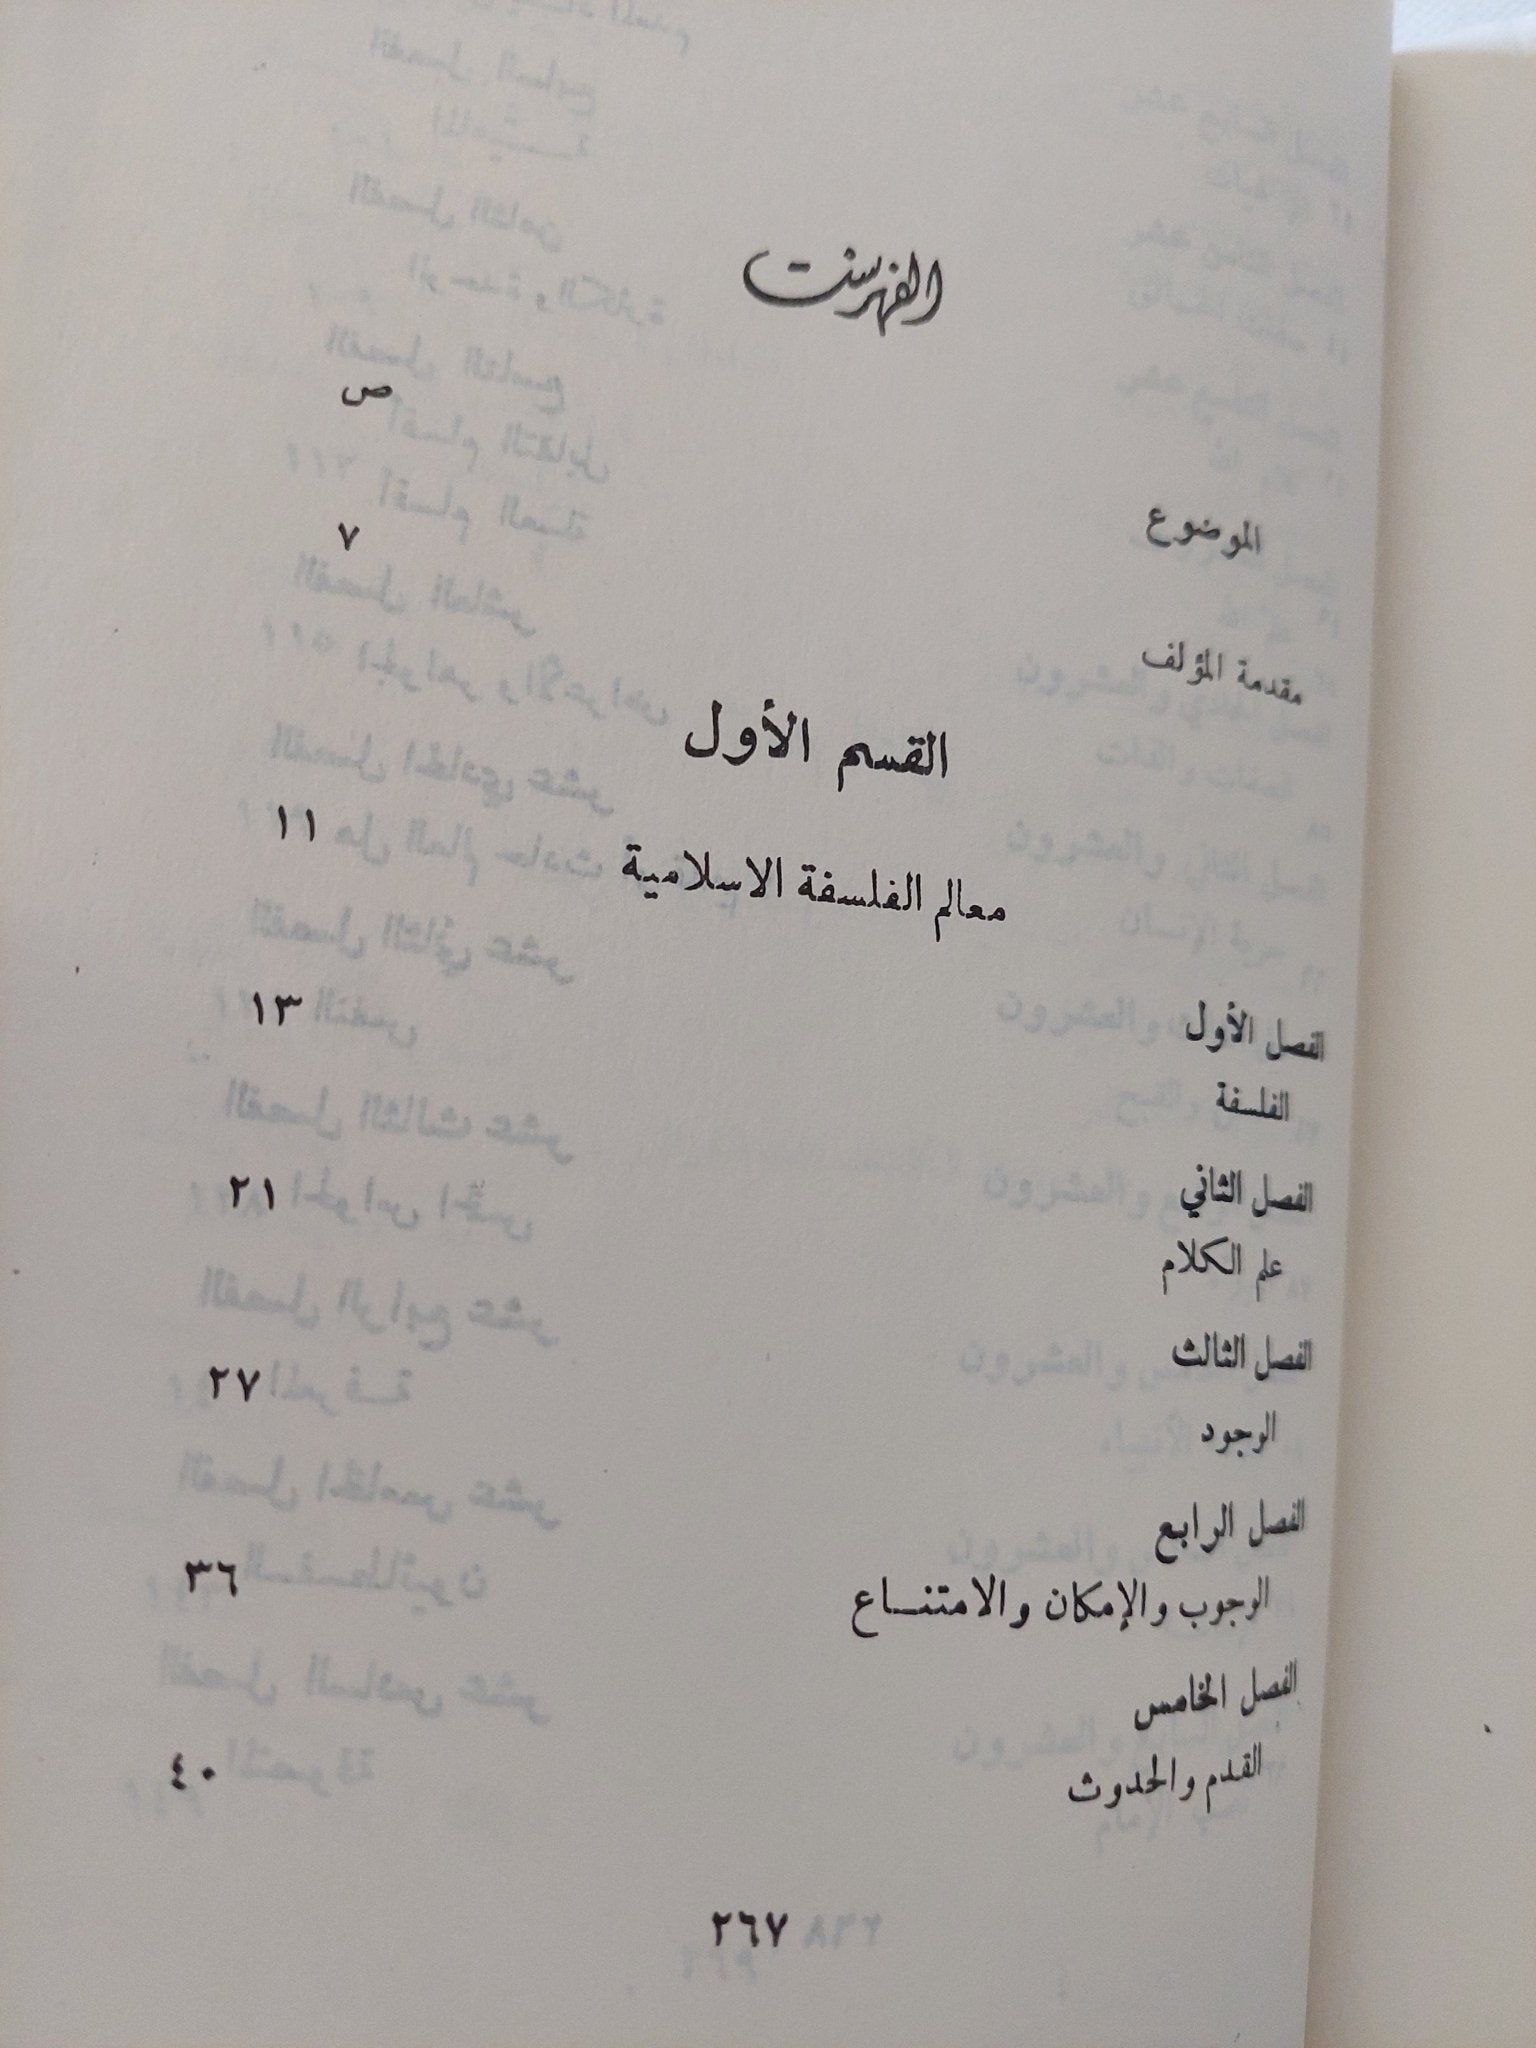 الفهرست
الموضوع ص
مقدمة المؤلف ٧
القسم الأول
معالم الفلسفة الاسلامية ١١
الفصل الأول
الفلسفة ١٣
الفصل الثاني
علم الكلام ٢١
الفصل الثالث
الوجود ٢٧
الفصل الرابع
الوجوب والإمكان والامتنـاع ٣٦
الفصل الخامس
القدم والحدوث ٤٠
٢٦٧